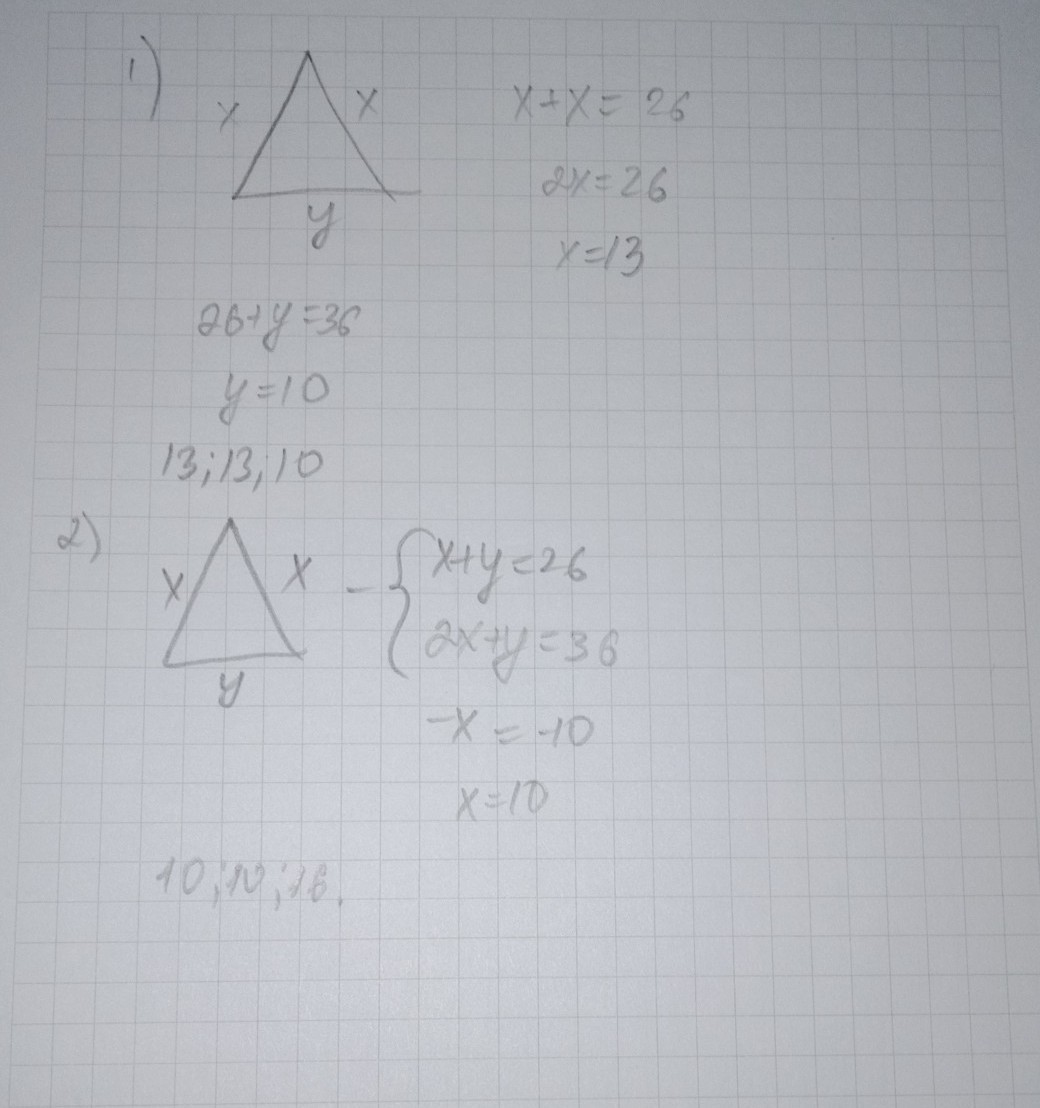 1)
x x x+x= 26
2x=26
y
x=13
26+y=36
y=10
13;13;10
2)
x x - { x+y=26
2x+y=36
y
-x = -10
x=10
10;10;16.